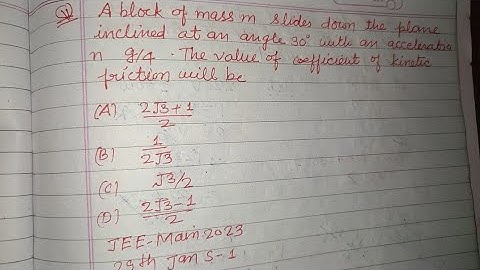 Q) A block of mass m slides down the plane
inclined at an angle 30° with an acceleratio
n g/4 . The value of coefficient of kinetic
friction will be
(A) 2√3+1/2
(B) 1/2√3
(C) √3/2
(D) 2√3-1/2
JEE-Main 2023
29th Jan S-1